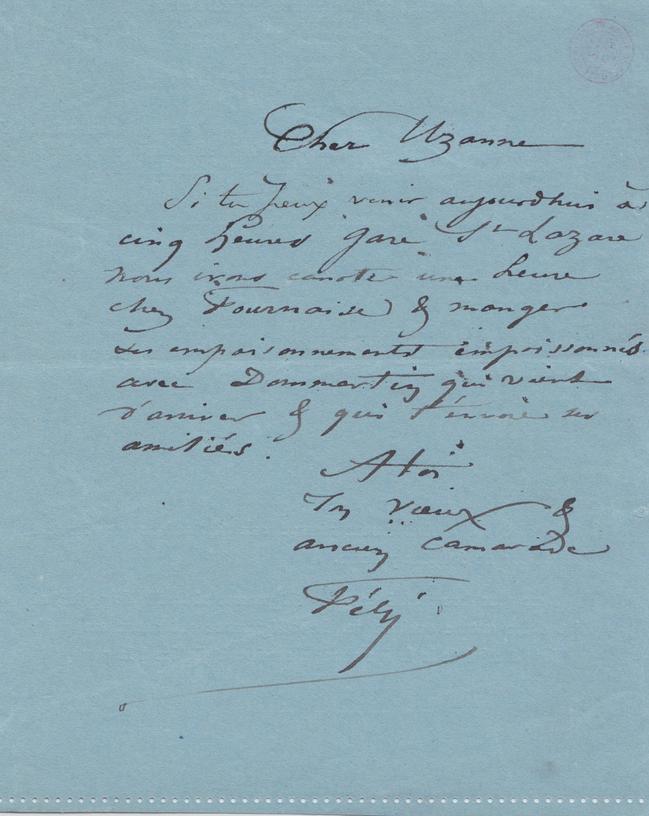 Cher Uzanne
Si tu peux venir aujourdhui à
cinq heures gare St Lazare
nous irons canoter une heure
chez Fournaise & manger
des empoisonnements empoissonnés
avec Dommartin qui vient
d'arriver & qui t'envoie ses
amitiés.
A toi
Ton vieux &
ancien Camarade
Fély